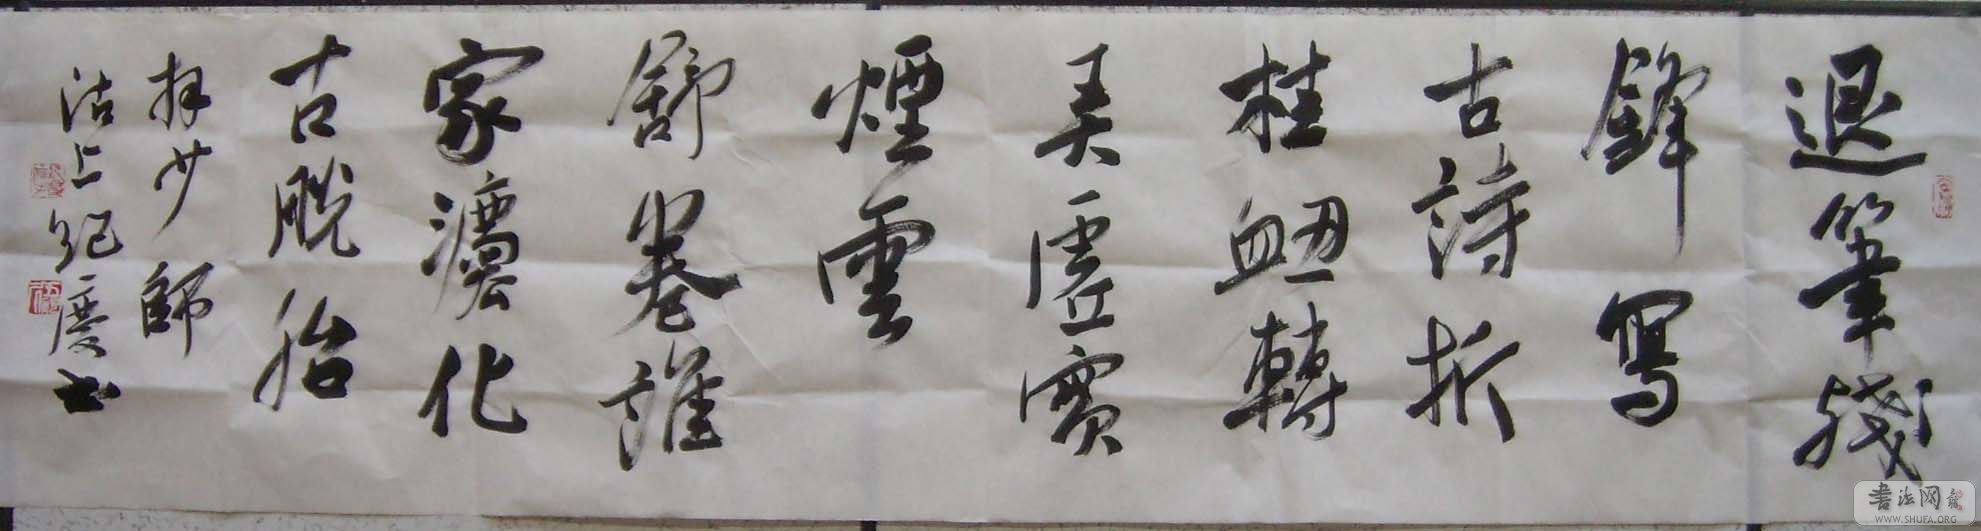 退筆殘
鋒寫
古詩折
桂衄轉
弄虛實
煙雲
舒卷誰
家灋化
古脫胎
師
沽上紀慶书
书法网
WWW.SHUFA.ORG